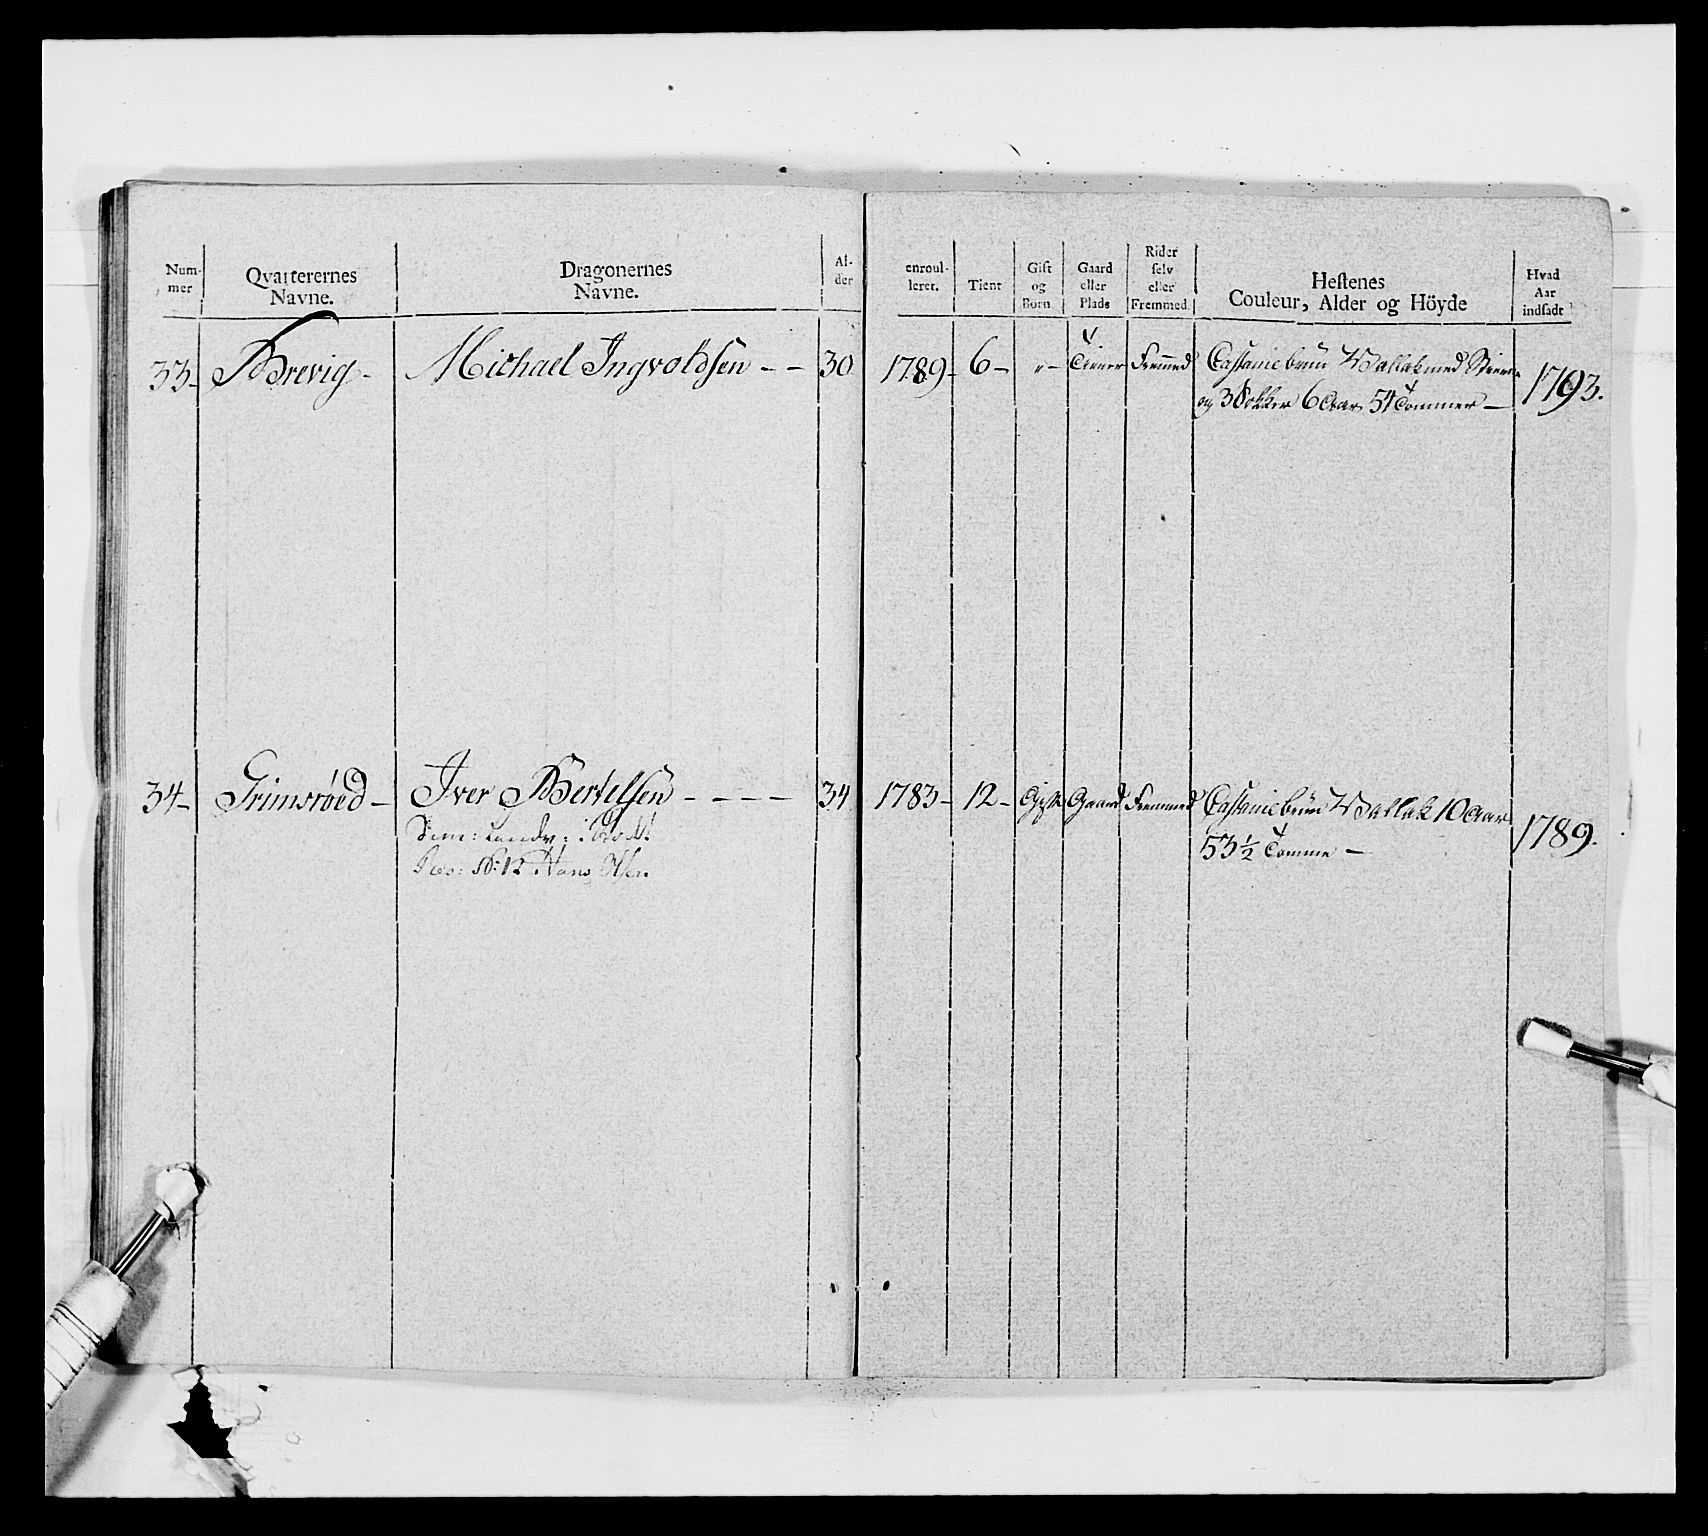 Num-
mer
Qvarterernes
Navne.
Dragonernes
Navne.
Al-
der
enroul-
leret.
Tient
Gift
og
Born
Gaard
eller
Plads
Rider
selv
eller
Fremmed
Hestenes
Couleur, Alder og Höyde
Hvad
Aar
indsadt
33- Brevig- Michael Ingvoldsen - - 30 1789- 6- „- Tiener Fremmed Castaniebrun Wallak med Stierne
og 3 Sokker 6 Aar 54 Tommer - 1793.
34- Grimsröed- Iver Bertelsen - - - - 34 1783- 12- Gift Gaard Fremmed Castaniebrun Wallak 10 Aar
53½ Tomme - 1789.
Dim: Landv:
No: 12 Hans Olsen